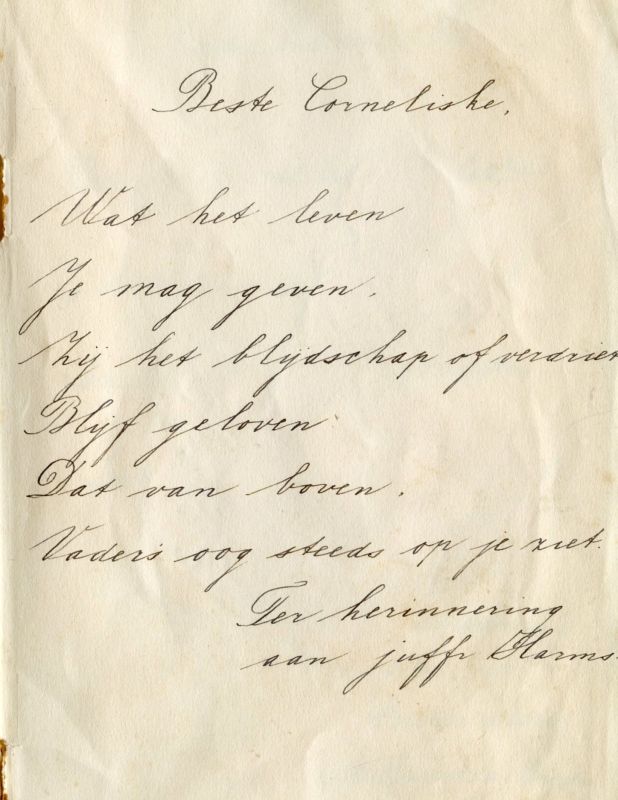 Beste Corneliske,
Wat het leven
Je mag geven.
Zij het blijdschap of verdriet
Blijf geloven
Dat van boven.
Vader's oog steeds op je ziet.
Ter herinnering
aan juffr Harms.